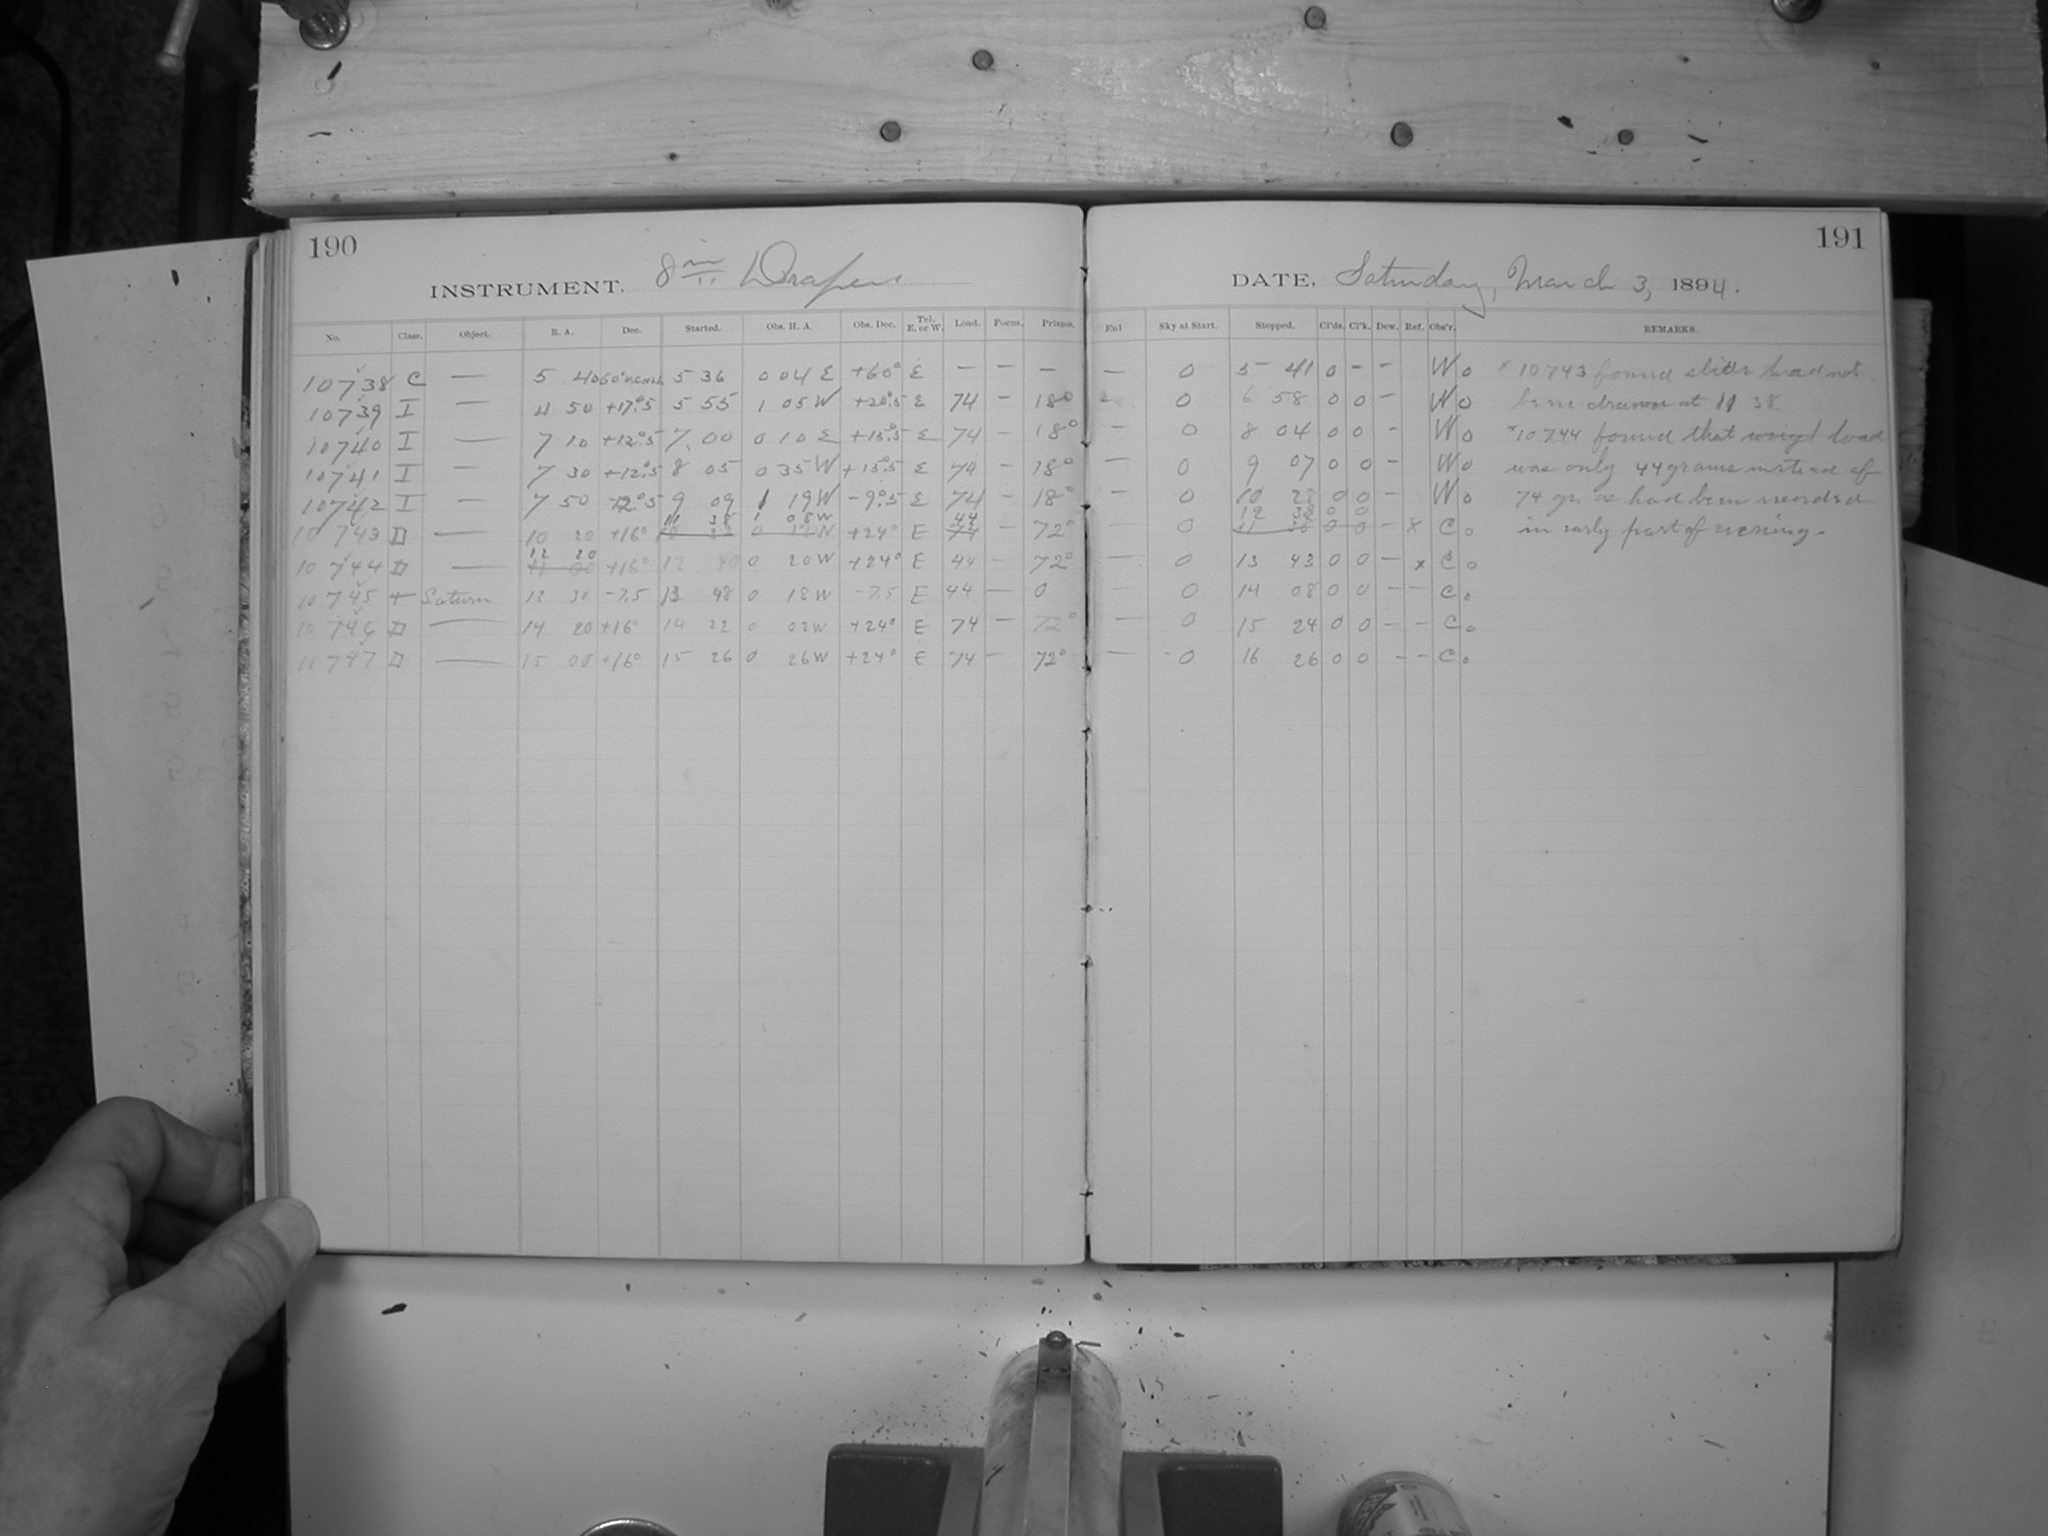 190
INSTRUMENT. 8 in Draper
No. Class. Object. R. A. Dec. Started. Obs. H. A. Obs. Dec. Tel. E. or W. Load. Focus. Prisms.
10738 C — 5 40 60° 5 36 0 04 E +60° E — — —
10739 I — 4 50 +17°.5 5 55 1 05 W +20°.5 E 74 — 18°
10740 I — 7 10 +12°.5 7 00 0 10 E +15°.5 E 74 — 18°
10741 I — 7 30 +12°.5 8 05 0 35 W +15°.5 E 74 — 18°
10742 I — 7 50 -12°.5 9 09 1 19 W -9°.5 E 74 — 18°
11 38 1 08 W 44
10743 D — 10 20 +16° 0 12 W +24° E 74 — 72°
12 20
10744 D — +16° 12 40 0 20 W +24° E 44 — 72°
10745 + Saturn 13 30 -7.5 13 48 0 18 W -7.5 E 44 — 0
10746 D — 14 20 +16° 14 22 0 02 W +24° E 74 — 72°
10747 D — 15 00 +16° 15 26 0 26 W +24° E 74 — 72°
191
DATE, Saturday, March 3, 1894.
Enl Sky at Start. Stopped. Cl'ds. Cl'k. Dew. Ref. Obs'r. REMARKS.
— 0 5 41 0 - - W o × 10743 found slide had not
0 6 58 0 0 - W o been drawn at 11 38
— 0 8 04 0 0 - W o × 10744 found that load
— 0 9 07 0 0 - W o was only 44 grams instead of
— 0 10 28 0 0 - W o 74 gr. as had been recorded
12 38 0 0
— 0 11 38 0 0 - × C o in early part of evening.
— 0 13 43 0 0 - × C o
— 0 14 08 0 0 - - C o
— 0 15 24 0 0 - - C o
— 0 16 26 0 0 - - C o